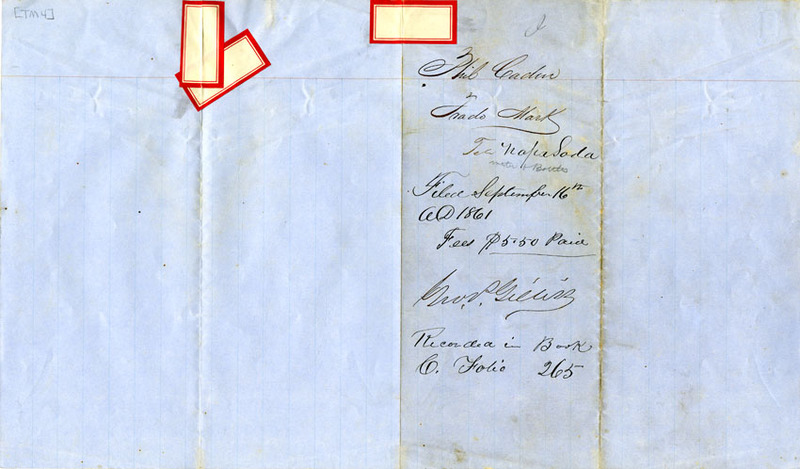 [TM4]
Phil Caduc
Trade Mark
For Napa Soda
Filed September 16th
AD 1861
Fees $5.50 Paid
Recorded in Book
C. Folio 265